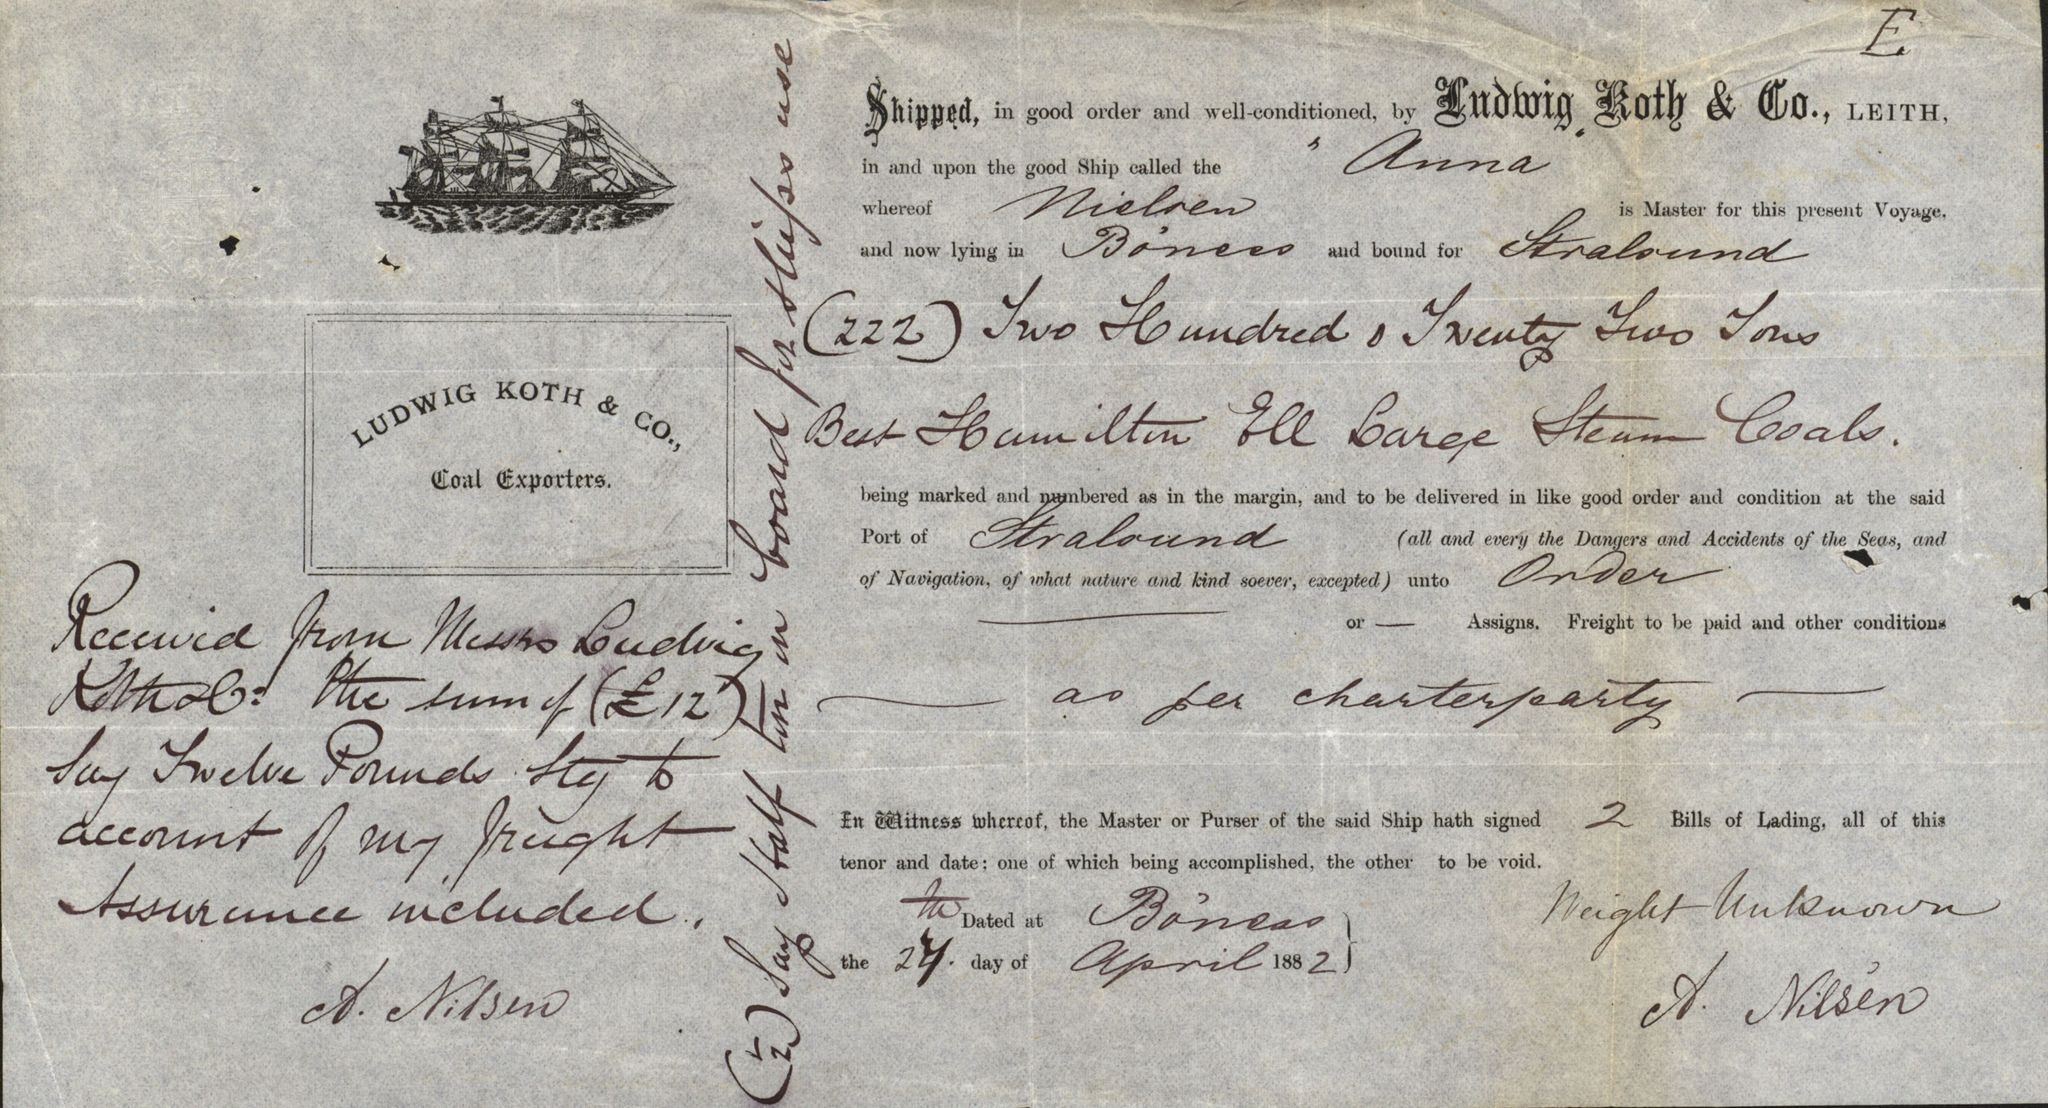 E.
Shipped, in good order and well-conditioned, by Ludwig Koth & Co., LEITH,
in and upon the good Ship called the "Anna"
whereof Nielsen is Master for this present Voyage,
and now lying in Bo'ness and bound for Stralsund
(222) Two Hundred & Twenty Two Tons
Best Hamilton Ell Large Steam Coals.
being marked and numbered as in the margin, and to be delivered in like good order and condition at the said
Port of Stralsund (all and every the Dangers and Accidents of the Seas, and
of Navigation, of what nature and kind soever, excepted) unto Order
or — Assigns. Freight to be paid and other conditions
— as per charterparty —
In Witness whereof, the Master or Purser of the said Ship hath signed 2 Bills of Lading, all of this
tenor and date; one of which being accomplished, the other to be void.
Dated at Bo'ness
the 24. th day of April 1882
Weight Unknown
A. Nilsen
LUDWIG KOTH & CO.,
Coal Exporters.
Received from Messrs Ludwig
Koth & Co: the sum of (£12")
Say Twelve Pounds Stg to
account of my freight
Assurance included.
A. Nilsen
(½) Say Half ton in board for ships use